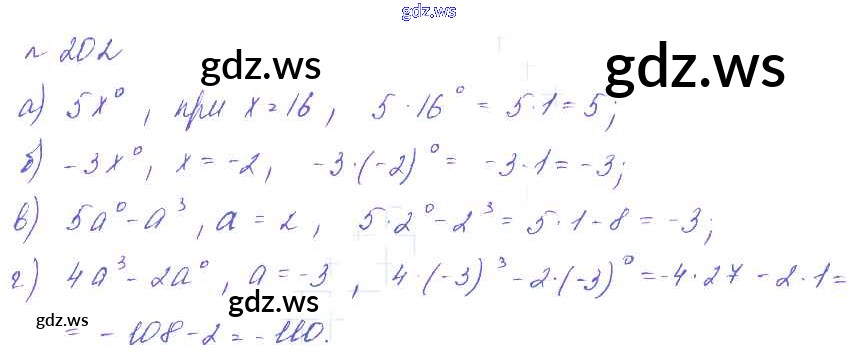 gdz.ws
n 202
gdz.ws gdz.ws
а) 5x⁰, при x=16, 5·16⁰ = 5·1 = 5;
б) -3x⁰, x = -2, -3·(-2)⁰ = -3·1 = -3;
в) 5a⁰-a³, a = 2, 5·2⁰-2³ = 5·1-8 = -3;
г) 4a³-2a⁰, a = -3, 4·(-3)³-2·(-3)⁰ = -4·27-2·1=
gdz.ws gdz.ws
= -108-2 = -110.